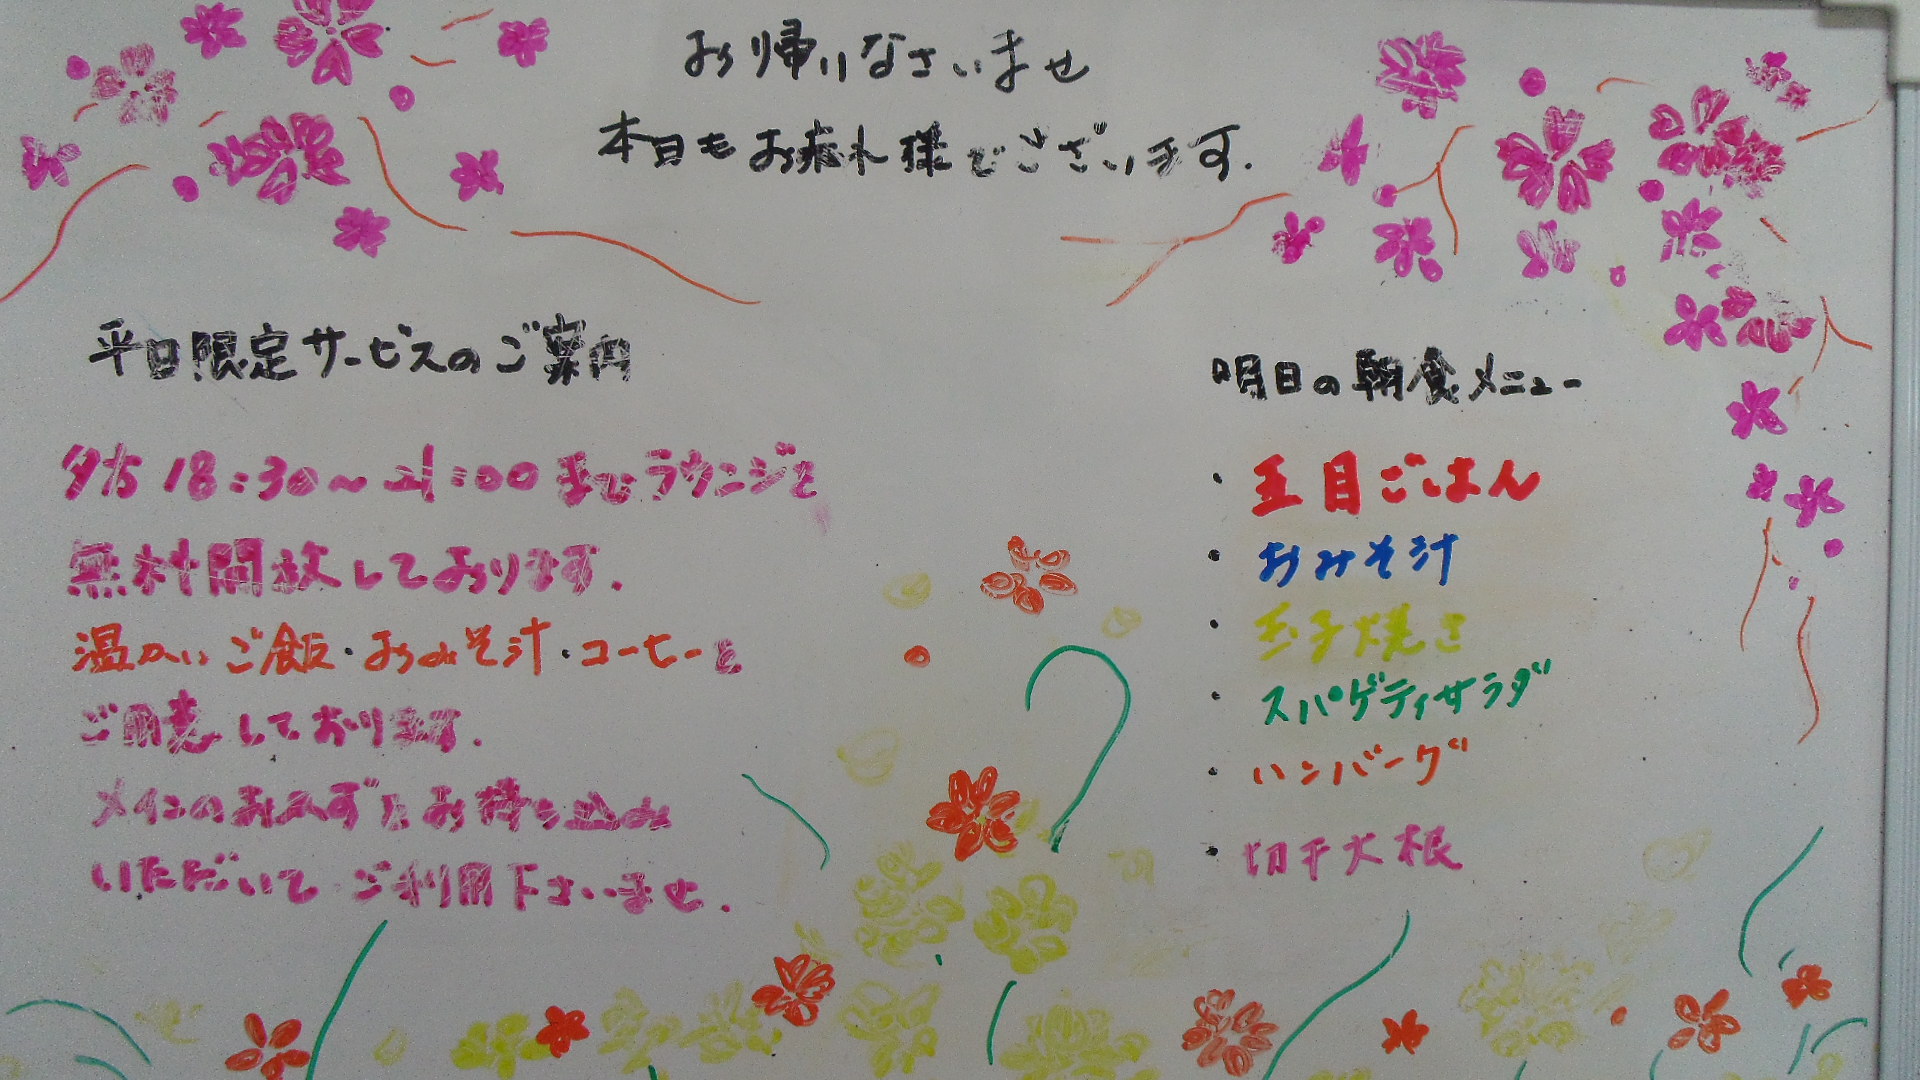 お帰りなさいませ
本日もお疲れ様でございます.
平日限定サービスのご案内
夕方 18:30～21:00までラウンジを
無料開放しております.
温かいご飯・おみそ汁・コーヒーを
ご用意しております.
メインのおかずをお持ち込み
いただいてご利用下さいませ.
明日の朝食メニュー
・五目ごはん
・おみそ汁
・玉子焼き
・スパゲティサラダ
・ハンバーグ
・切干大根